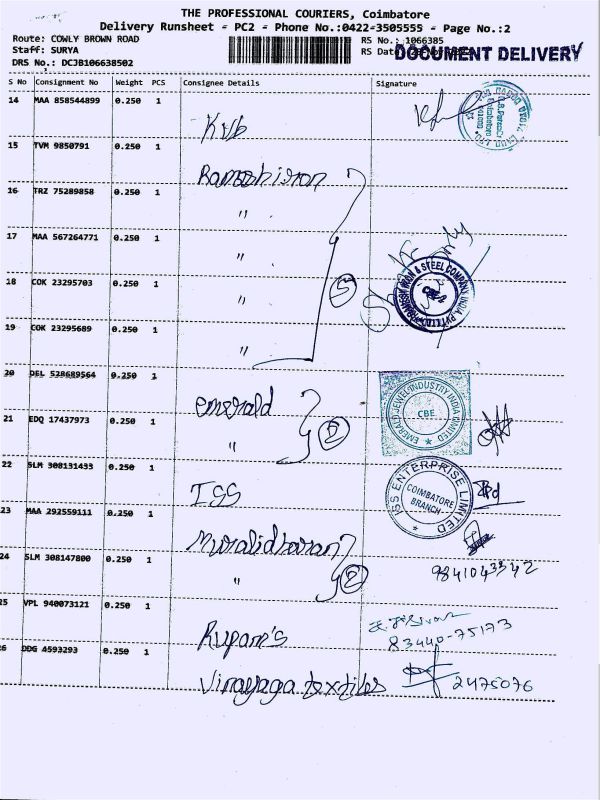 THE PROFESSIONAL COURIERS, Coimbatore
Delivery Runsheet - PC2 - Phone No.:0422-3505555 - Page No.:2
Route: COWLY BROWN ROAD
RS No.: 1066385
Staff: SURYA
RS Date
DOCUMENT DELIVERY
DRS No.: DCJB106638502
S No Consignment No Weight PCS Consignee Details Signature
14 MAA 858544899 0.250 1
KVB
15 TVM 9850791 0.250 1
Ramesh iron
16 TRZ 75289858 0.250 1
"
17 MAA 567264771 0.250 1
"
18 COK 23295703 0.250 1
" 5
19 COK 23295689 0.250 1
"
& STEEL COMPANY INDIA
20 DEL 528689564 0.250 1
emerald
EMERALD JEWEL INDUSTRY INDIA LIMITED
CBE
21 EDQ 17437973 0.250 1
" 2
22 SLM 308131433 0.250 1
ISS
ISS ENTERPRISE LIMITED
COIMBATORE
BRANCH
23 MAA 292559111 0.250 1
Muralidharan
24 SLM 308147800 0.250 1
" 2
9841043342
25 VPL 940073121 0.250 1
Rupam's
83440-75173
26 DDG 4593293 0.250 1
Vinayaga textiles
2475076